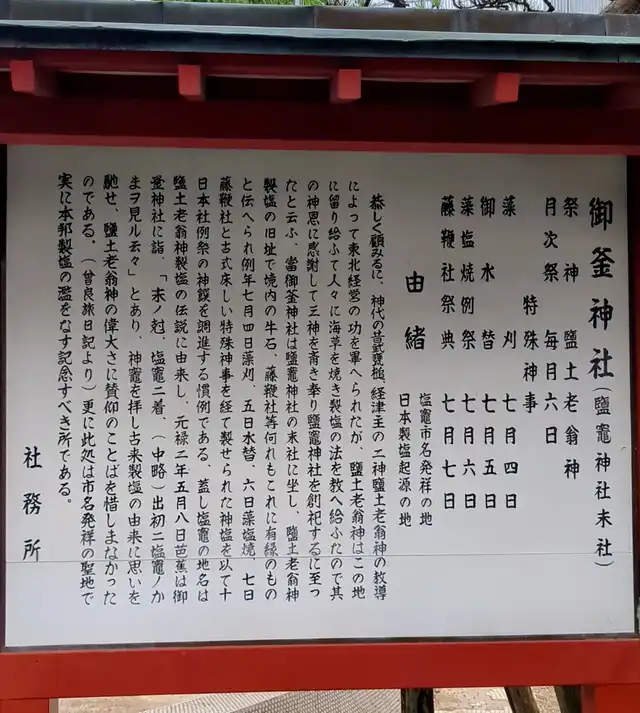 御釜神社(鹽竈神社末社)
祭神 鹽土老翁神
月次祭 毎月六日
特殊神事
藻刈 七月四日
御水替 七月五日
藻塩焼例祭 七月六日
藤鞭社祭典 七月七日
塩竈市名発祥の地
日本製塩起源の地
由緒
恭しく顧みるに、神代の昔武甕槌、経津主の二神鹽土老翁神の教導
によって東北経営の功を畢へられたが、鹽土老翁神はこの地
に留り給ふて人々に海草を焼き製塩の法を教へ給ふたので其
の神恩に感謝して三神を斎き奉り鹽竈神社を創祀するに至っ
たと云ふ、當御釜神社は鹽竈神社の末社に坐し、鹽土老翁神
製塩の旧址で境内の牛石、藤鞭社等何れもこれに有縁のもの
と伝へられ例年七月四日藻刈、五日水替、六日藻塩焼、七日
藤鞭社と古式床しい特殊神事を経て製せられた神塩を以て十
日本社例祭の神饌を調進する慣例である、蓋し塩竈の地名は
鹽土老翁神製塩の伝説に由来し、元禄二年五月八日芭蕉は御
釜神社に詣、「未ノ尅、塩竈ニ着、(中略)出初ニ塩竈ノか
まヲ見ル云々」とあり、神竈を拝し古来製塩の由来に思いを
馳せ、鹽土老翁神の偉大さに賛仰のことばを惜しまなかった
のである。(曽良旅日記より)更に此処は市名発祥の聖地で
実に本邦製塩の濫をなす記念すべき所である。
社務所